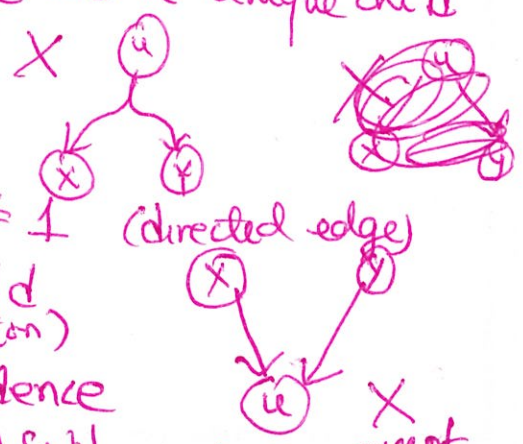 unique child
X u
x Y
u
x y
= 1 (directed edge)
X y
d
on)
dence
u X
not